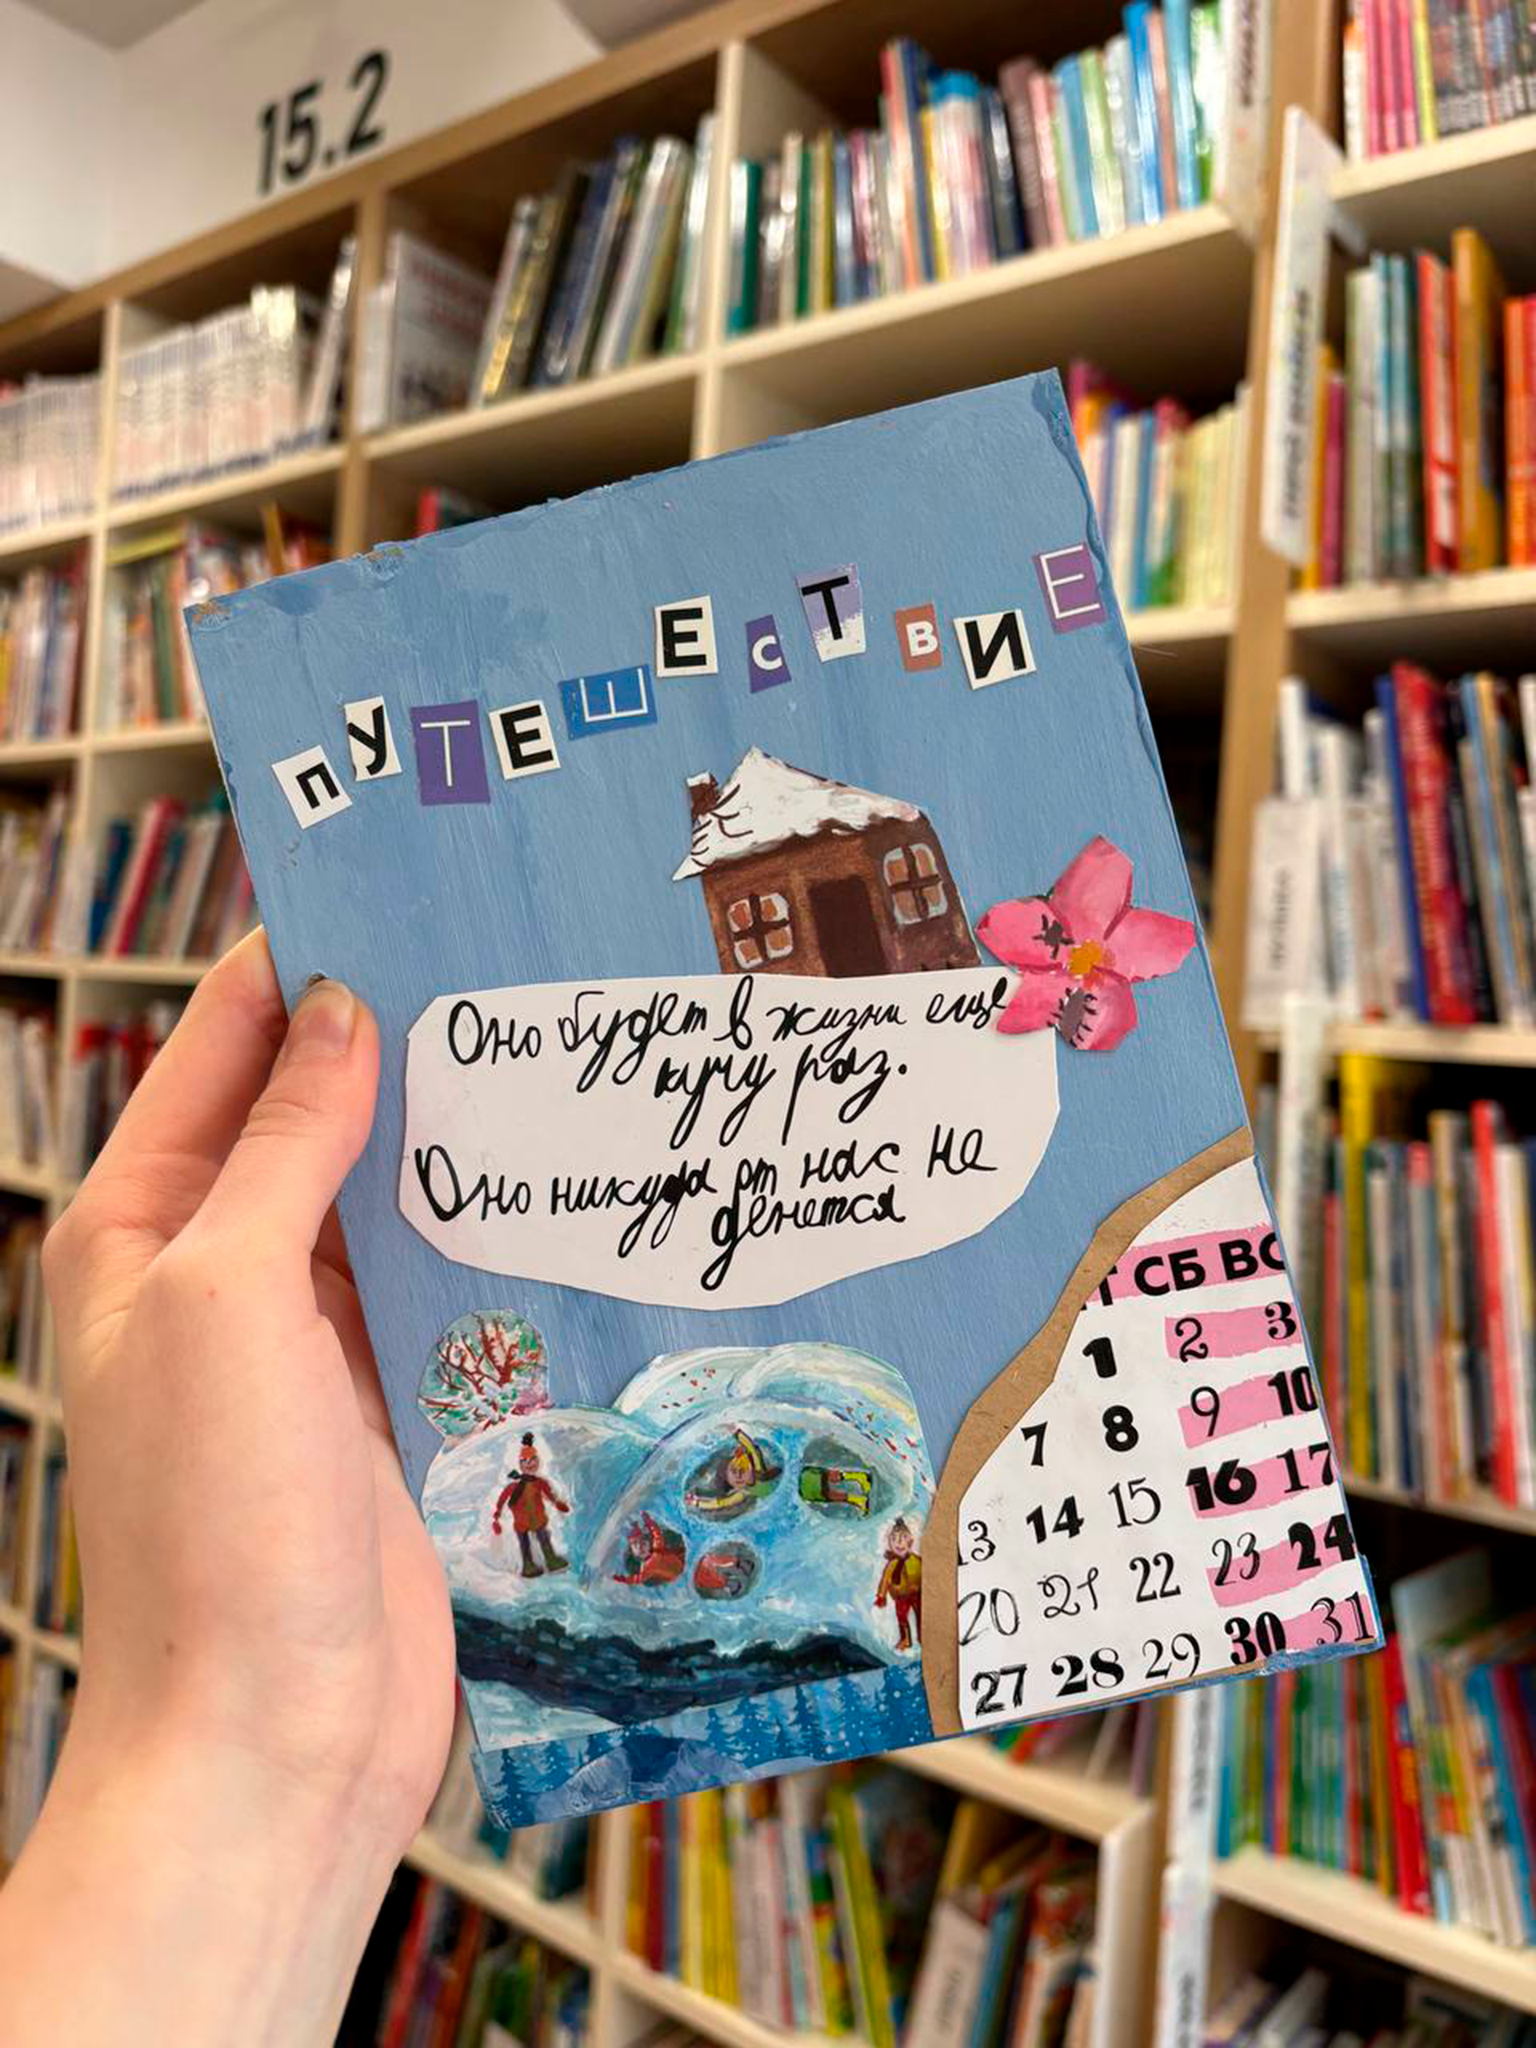 15.2
ПУТЕШЕСТВИЕ
Оно будет в жизни еще
кучу раз.
Оно никуда от нас не
денется
СБ ВС
1 2 3
7 8 9 10
13 14 15 16 17
20 21 22 23 24
27 28 29 30 31